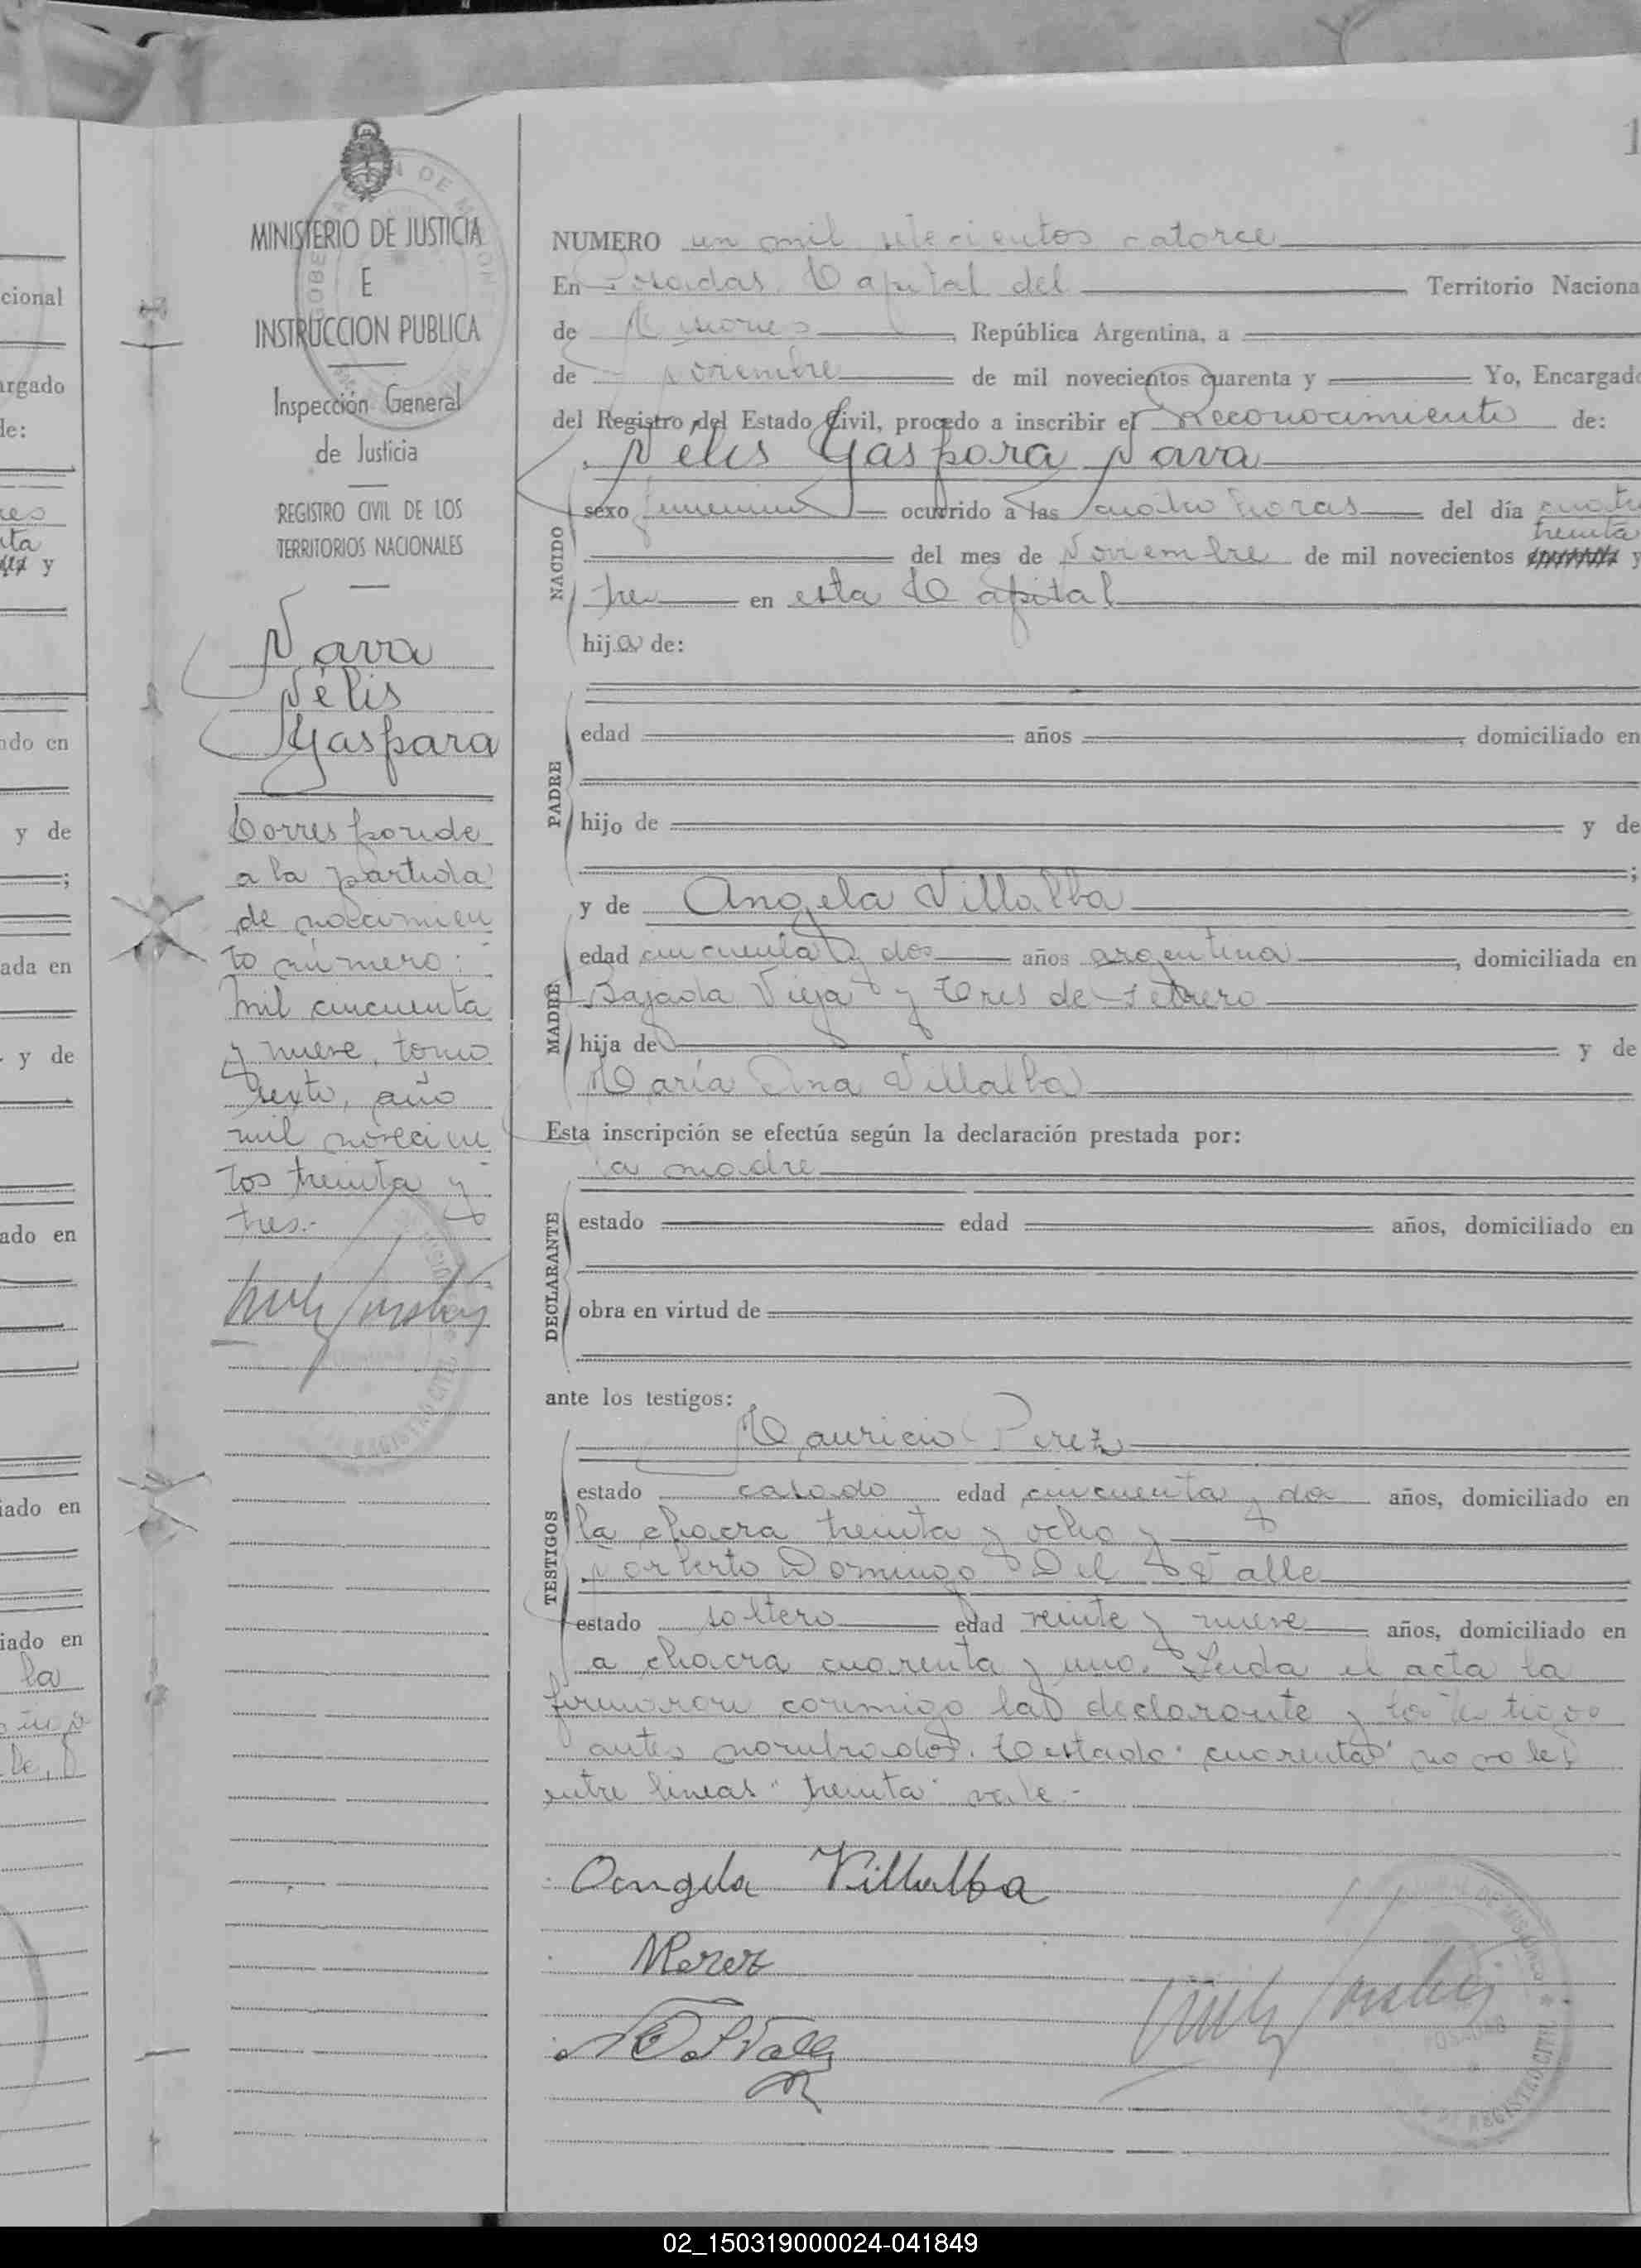 MINISTERIO DE JUSTICIA
E
INSTRUCCION PUBLICA
Inspección General
de Justicia
REGISTRO CIVIL DE LOS
TERRITORIOS NACIONALES
Nava
Nélis
Gaspara
Corresponde
a la partida
de nacimien
to número:
mil cincuenta
y nueve, tomo
sexto, año
mil novecien
tos treinta y
tres.-
1
NUMERO un mil setecientos catorce
En Posadas, Capital del Territorio Naciona
de Misiones República Argentina, a
de noviembre de mil novecientos cuarenta y Yo, Encargado
del Registro del Estado Civil, procedo a inscribir el Reconocimiento de:
Nelis Gaspara Nava
NACIDO
sexo femenino ocurrido a las cuatro horas del día cuatro
treinta
del mes de Noviembre de mil novecientos y
tres en esta Capital
hija de:
PADRE
edad años domiciliado en
hijo de y de
;
MADRE
y de Angela Villalba
edad cincuenta y dos años argentina, domiciliada en
Bajada Vieja y Tres de Febrero
hija de y de
María Ana Villalba
Esta inscripción se efectúa según la declaración prestada por:
la madre
DECLARANTE
estado edad años, domiciliado en
obra en virtud de
ante los testigos:
TESTIGOS
Mauricio Perez
estado casado edad cincuenta y dos años, domiciliado en
la chacra treinta y ocho y
Norberto Domingo Del Valle
estado soltero edad veinte y nueve años, domiciliado en
la chacra cuarenta y uno. Leida el acta la
firmaron conmigo la declarante y los testigos
antes nombrados. Testado "cuarenta" no vale,
entre lineas "treinta" vale.-
Angela Villalba
MPerez
REGISTRO CIVIL
POSADAS
cional
argado
de:
y
ado en
y de
;
ada en
y de
ado en
iado en
iado en
la
02_150319000024-041849